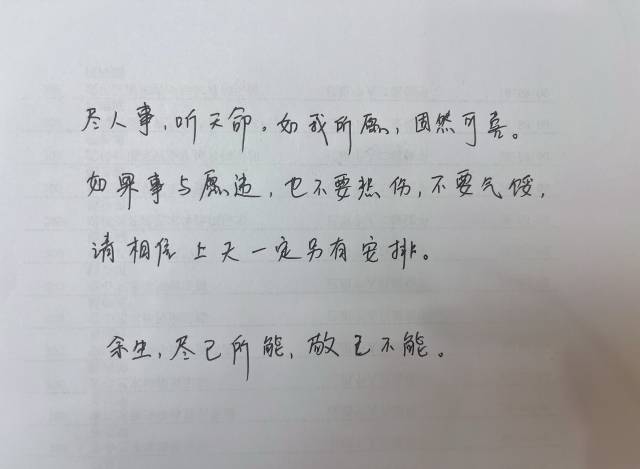 尽人事，听天命。如我所愿，固然可喜。
如果事与愿违，也不要悲伤，不要气馁，
请相信上天一定另有安排。
余生，尽己所能，敬己不能。